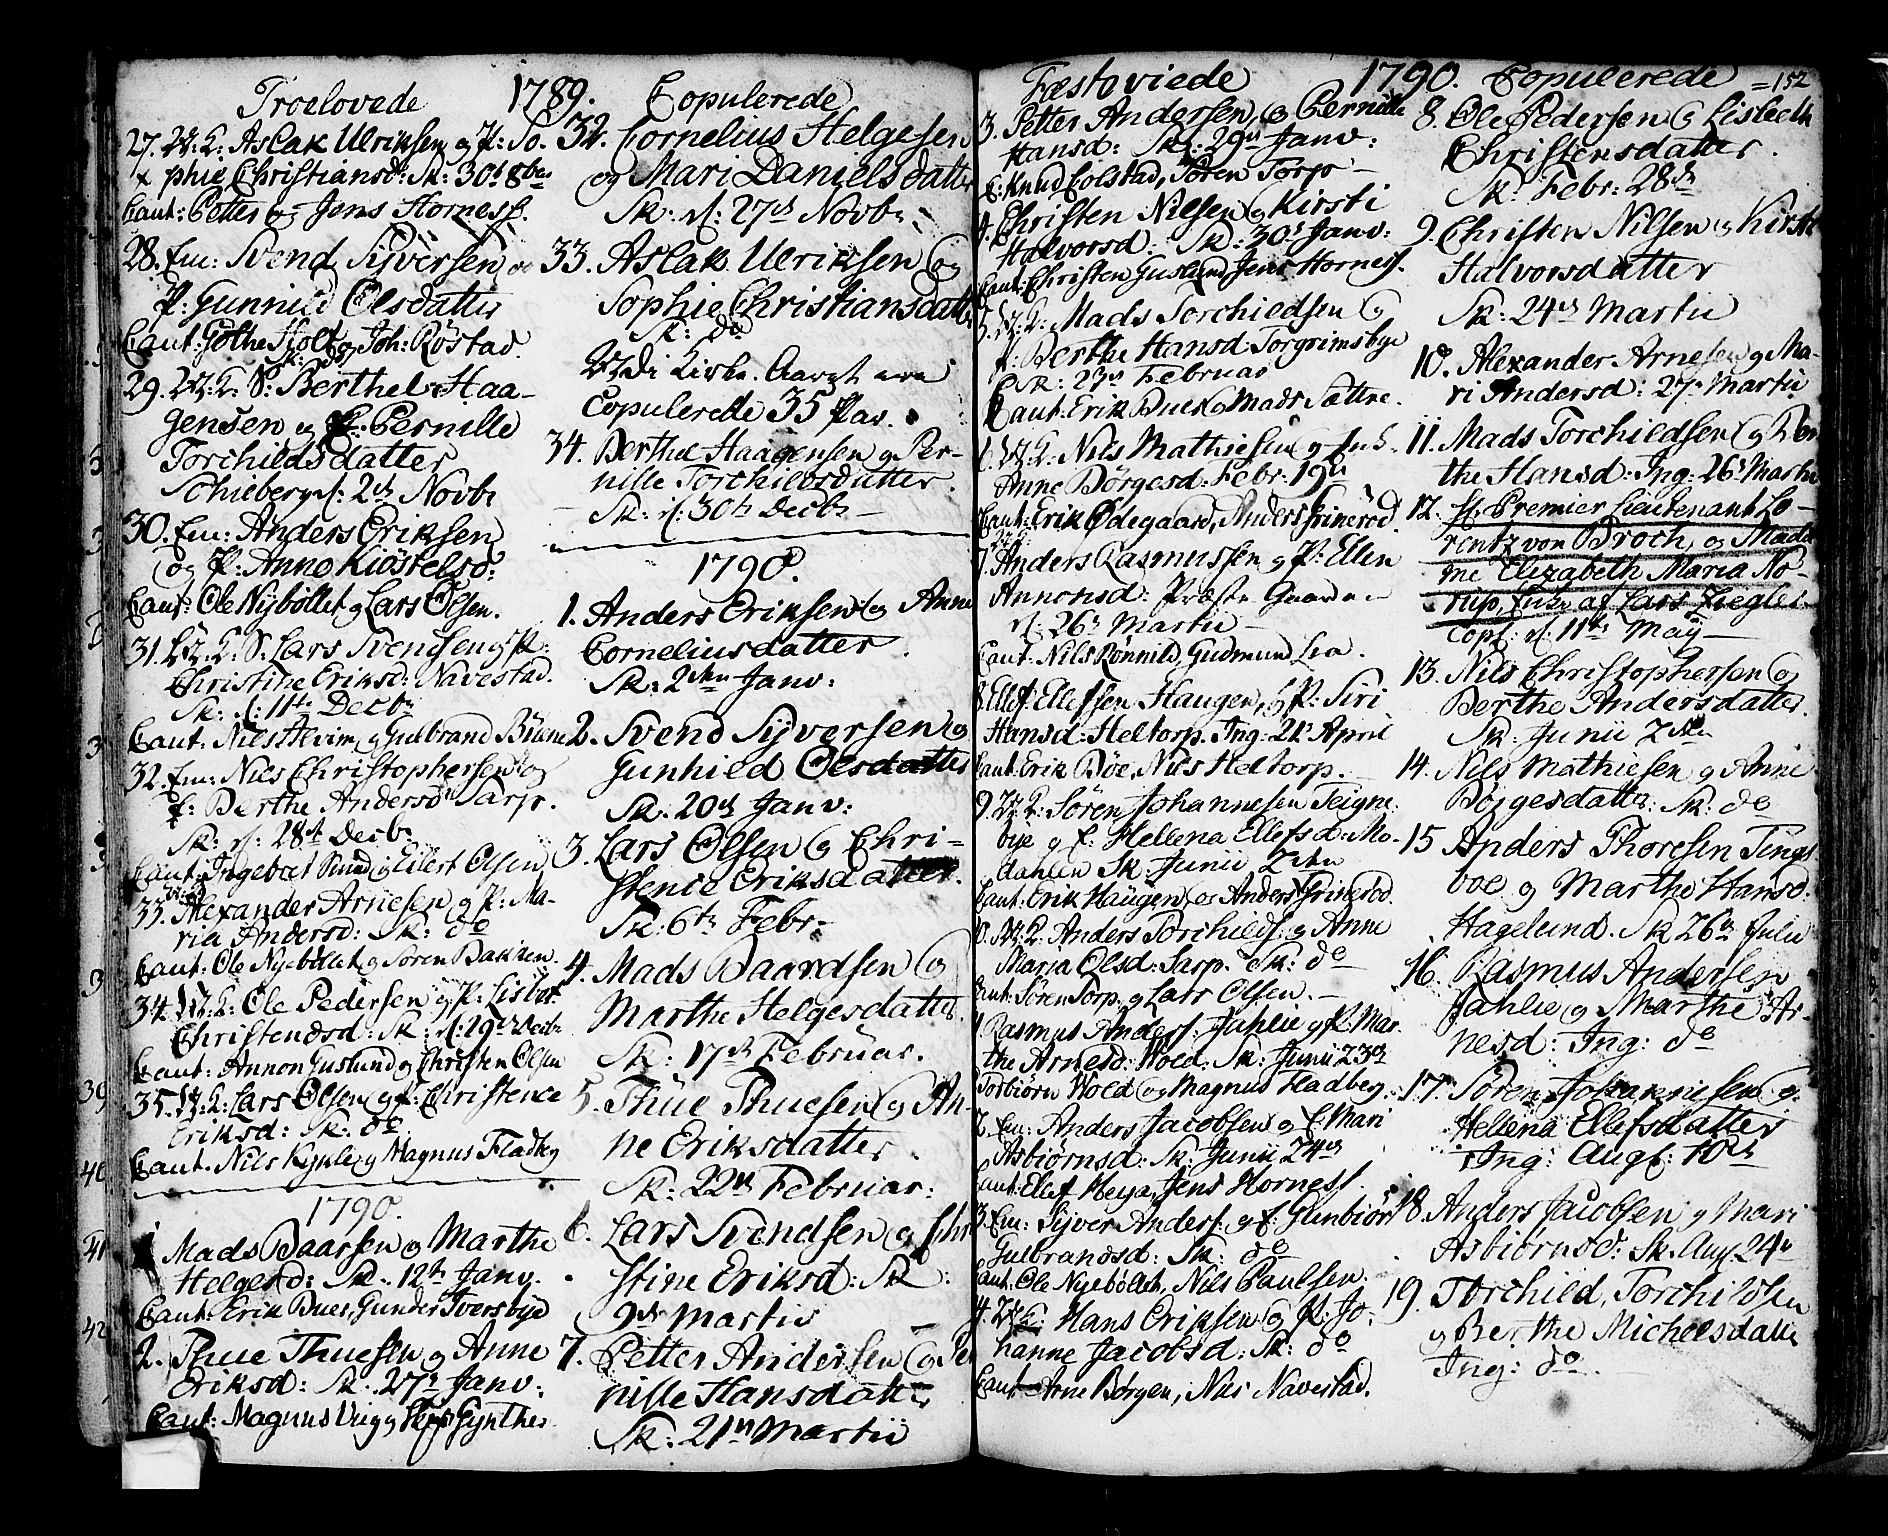 Troelovede 1789.
27. Aslak Ulriksen og P: So.
phie Christiansd: Sk: 30t 8br
Caut: Petter og Jens Hornes.
28. Em: Svend Syversen og
P: Gunnild Olsdatter
Caut: Gothe Holt og Joh: Röstad.
Sk: do
29. S: Berthel Haa-
gensen og P. Pernille
Torchildsdatter
Schieberg d: 2th Novbr
30. Em: Anders Eriksen
og P: Anne Kiöstelsd:
Caut: Ole Nybøllet og Lars Olsen.
31. S: Lars Svensen og P:
Christine Eriksd: Navestad.
Sk: d: 11te Decbr
Caut: Nils Hevim og Gulbrand
32. Em: Niels Christophersen og
P: Berthe Andersd: Sarp.
Sk: d: 28de Decbr
Caut: Ingebret Sund og Eilert Olsen
33. Alexander Arnesen og P: Ma-
ria Andersd: Sk: do
Caut: Ole Nyebøllet og Søren Bakken.
34. Ole Pedersen og P: Lisbet
Christensd: Sk: d: 29de Decbr
Caut: Annon Guslund og Christen Olsen
35. Lars Olsen og P: Christence
Eriksd: Sk: do
Caut. Nils Kyple og Magnus Fladby
1790.
1 Mads Baarsen og Marthe
Helgesd: Sk. 12th Janv.
Caut: Erik Bues, Gunder Iversbye
2. Thue Thuesen og Anne
Eriksd: Sk. 27de Janv:
Caut: Magnus og Gynther
Copulerede
32. Cornelius Helgesen
og Mari Danielsdatter
Sk: d: 27de Novbr
33. Aslak Ulriksen og
Sophie Christiansdatter
Sk: do
Kirke. Aaret
Copulerede 35 Par.
34. Berthel Haagensen og Per-
nille Torchildsdatter.
Sk: d: 30th Decbr
1790.
1. Anders Eriksen og Anne
Corneliusdatter.
Sk: 2den Janv:
2. Svend Syversen og
Gunhild Olsdatter
Sk. 20de Janv:
3. Lars Olsen og Chri-
stence Eriksdatter.
Sk: 6te Febr:
4. Mads Baardsen og
Marthe Helgesdatter.
Sk: 17de Februar.
5. Thue Thuesen og An-
ne Eriksdatter.
Sk: 22de Februar.
6. Lars Svendsen og Chri
stine Eriksd: Sk:
9de Martii
7. Petter Andersen og Per
nille Hansdatter
Sk: 21de Martii
Fæstoviede 1790.
3. Petter Andersen, og Pernille
Hansd: Sk: 29de Janv:
C: Knud Colstad, Søren Torp
4. Christen Nilsen og Kirsti
Halvorsd: Sk: 30te Janv:
Caut: Christen Guslund, Jens Hornes.
5. Mads Torchildsen og
P: Berthe Hansd: Torgrimsbye
Sk: 23de Februar
Caut: Erik Buer og Mads Sættre.
Nils Mathiesen og
Anne Børgesd: Febr: 19de
Caut: Erik Ødegaard, Anders Grinerød.
7. Anders Rasmussen og P: Ellen
Annonsd: Præste Gaarden
d: 26de Martii
Caut: Nils Rønnild, Gudmund Lea.
8. Ellef Ellefsen Haugen, og P: Siri
Hansd: Heltorp. Ing: 21de April
Caut: Erik Bøe, Nils Heltorp.
9. Søren Johannesen Teigne-
bye og P: Hellena Ellefsd: Mo-
dahlen Sk: Junii 2den
Caut: Erik Haugen, og Anders Grinerød.
10. Anders Torchilds: og Anne
Maria Olsd: Sarp. Sk: do
Caut: Søren Torp og Lars Olsen.
Rasmus Anders: Jahlie og P: Mar-
the Arnesd: Wold. Sk: Junii 23de
Torbiørn Wold og Magnus Fladbey.
Em: Anders Jacobsen og P Mari
Asbiørnsd: Sk: Junii 24de
Caut: Ellef Heya, Jens Hornes.
Em: Syver Anders: og P: Gunbiør
Gulbrandsd: Sk: do
Caut: Ole Nyebøllet, Nils Paulsen.
Hans Eriksen og P: Jo-
hanne Jacobsd: Sk: do
Caut Arne Børgen, Nils Navestad.
Copulerede =152
8. Ole Pedersen og Lisbeth
Christensdatter.
Sk: Febr: 28de
9. Christen Nilsen og Kirsti
Halvorsdatter
Sk: 24de Martii
10. Alexander Arnesen og Ma-
ri Andersd: 27de Martii
11. Mads Torchildsen og Ber
the Hansd: Ing: 26de Martii
12. H. Premier Lieutenant Lo-
rentz von Broch, og Mada
me Elizabeth Maria No-
rup, Enke af Lars Ziegler.
Cop: d: 11te May
13. Nils Christophersen og
Berthe Andersdatter.
Sk: Junii 2den
14. Nils Mathiesen og Anne
Børgesdatter. Sk: do
15 Anders Thoresen Tings
boe og Marthe Hansd:
Hagelund. Sk 26de Julii
16. Rasmus Andersen
Jahlie og Marthe Ar-
nesd: Ing: do
17. Søren Johannesen og
Hellena Ellefsdatter
Ing: Aug: 10de
18. Anders Jacobsen og Mari
Asbiørnsd: Sk. Aug. 24de
19. Torchild Torchildsen
og Berthe Michelsdatter
Ing: do.
39
40
41
42